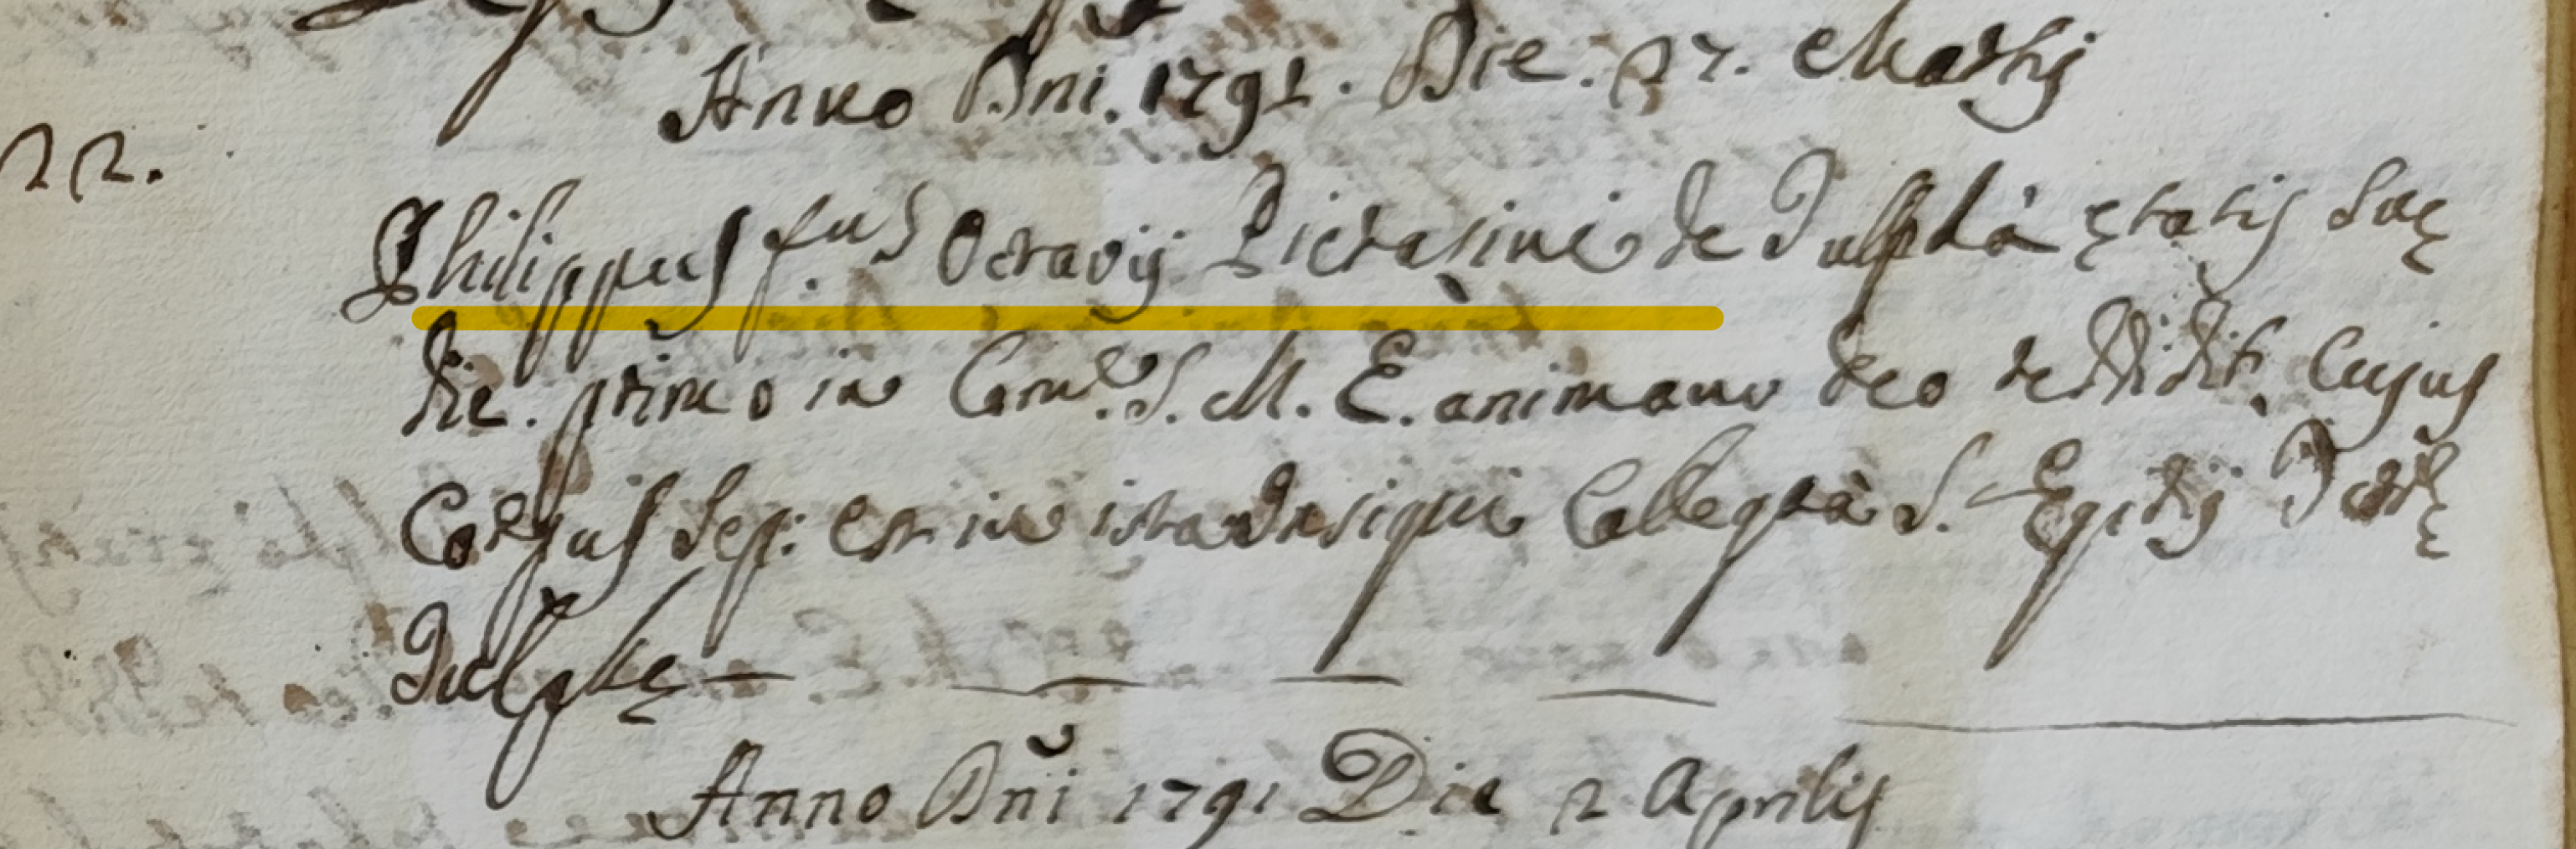 Anno Dni. 1791. Die. 27. Martij
22.
Philippus f.us Octavij Pietrasini de Tulphâ ętatis suę
die. primo in Com.e S. M. E. animam deo reddidit, Cujus
Corpus Sep: est in ista insigni Collegtâ S. Egidij
Tulphę
Anno Dni 1791 Die 2 Aprilis